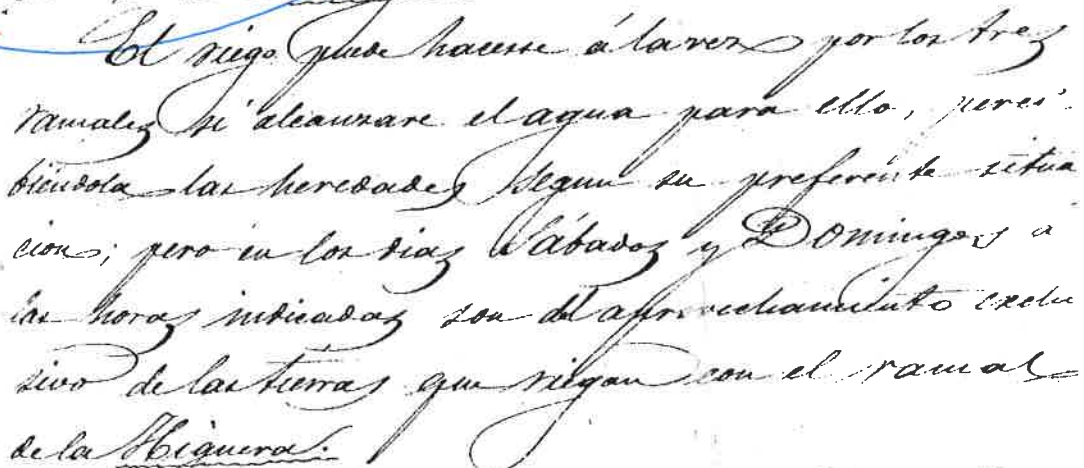 El riego puede hacerse á la vez por los tres
ramales si alcanzare el agua para ello, perci-
biéndola las heredades segun su preferente situa
cion; pero en los dias Sábados y Domingos a
las horas indicadas son del aprovechamiento exclu
sivo de las tierras que riegan con el ramal
de la Higuera.